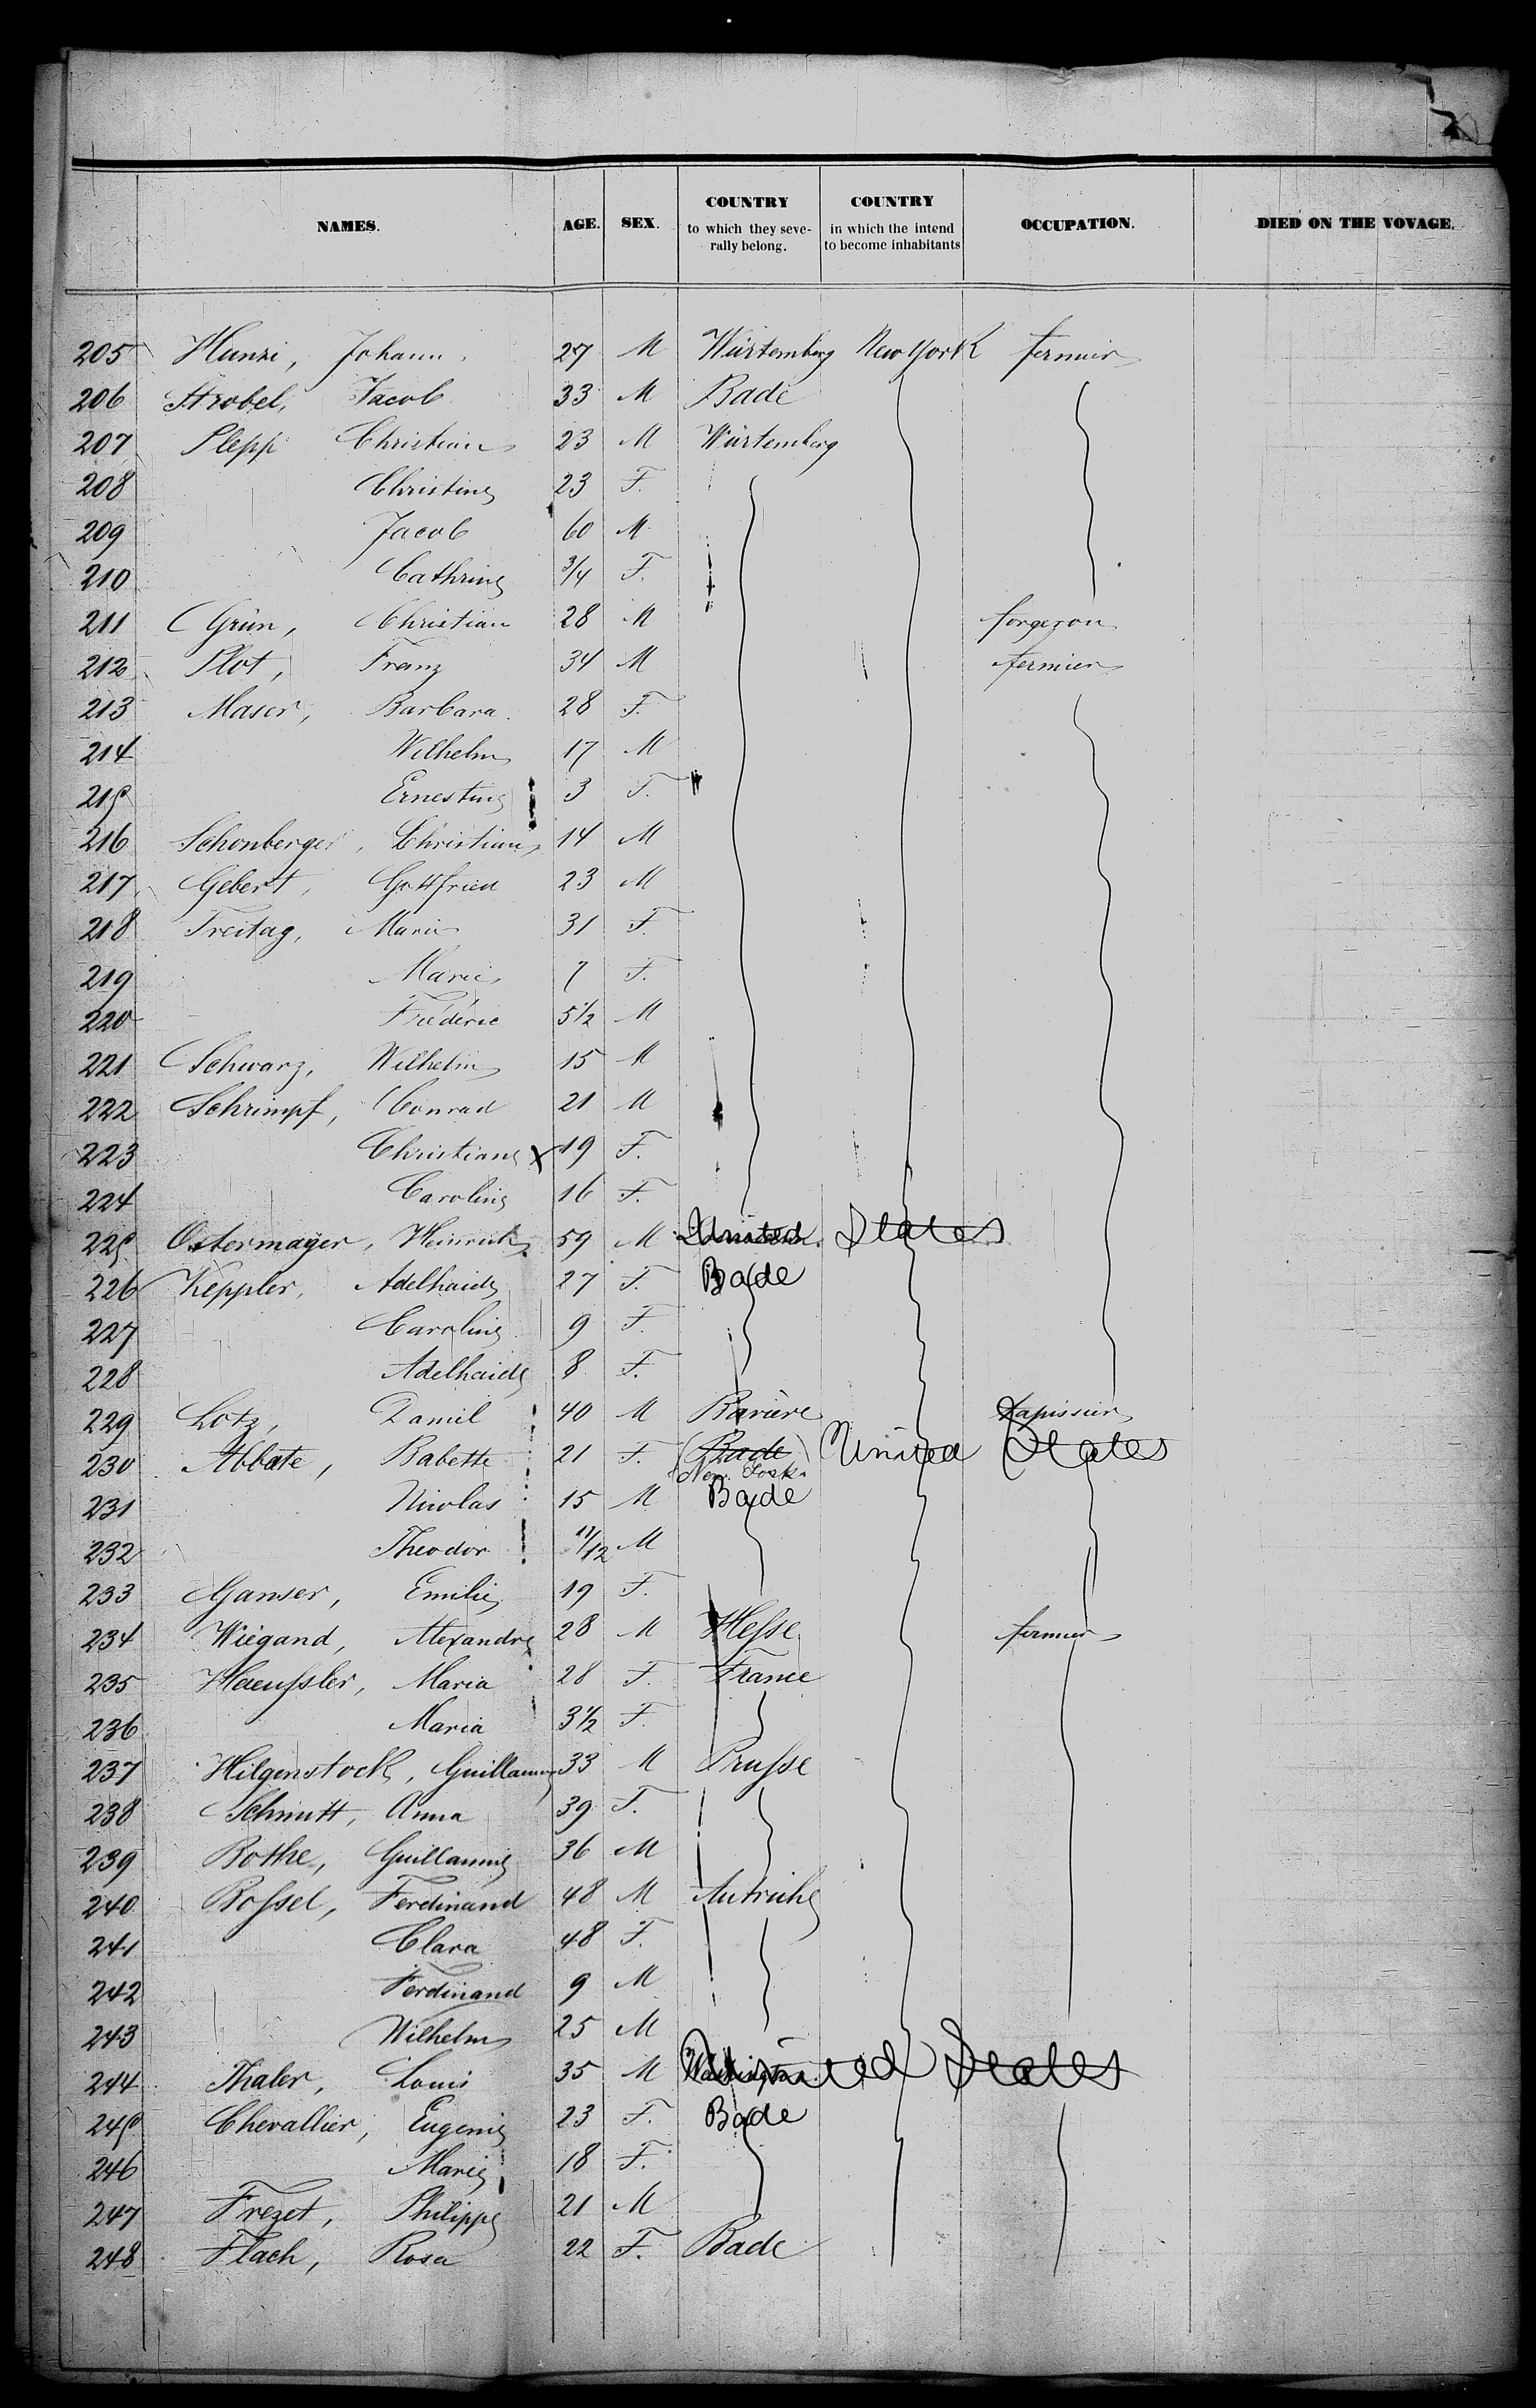 NAMES. AGE. SEX. COUNTRY to which they seve- rally belong. COUNTRY in which the intend to become inhabitants OCCUPATION. DIED ON THE VOVAGE.
205 Hunzi, Johann, 27 M Würtemberg New York fermier
206 Strobel, Jacob 33 M Bade
207 Slepp Christian 23 M Würtemberg
208 Christine 23 F.
209 Jacob 60 M
210 Cathrine 3/4 F.
211 Grün, Christian 28 M forgeron
212 Plot, Franz 34 M fermier
213 Maser, Barbara. 28 F.
214 Wilhelm 17 M
215 Ernestine 3 F.
216 Schonberger, Christian 14 M
217 Gebert, Gottfried 23 M
218 Freitag, Marie 31 F.
219 Marie 7 F.
220 Fréderic 5 1/2 M
221 Schwarz, Wilhelm 15 M
222 Schrimpf, Conrad 21 M
223 Christiane X 19 F.
224 Caroline 16 F.
225 Ostermayer, Heinrich 59 M United States
226 Keppler, Adelhaide 27 F. Bade
227 Caroline 9 F.
228 Adelhaide 8 F.
229 Lotz, Daniel 40 M Bavière tapissier
230 Abbate, Babette 21 F. (Bade) New York United States
231 Nicolas 15 M Bade
232 Theodor 11/12 M
233 Ganser, Emilie 19 F.
234 Wiegand, Alexandre 28 M Hesse fermier
235 Haeussler, Maria 28 F. France
236 Maria 3 1/2 F.
237 Hilgenstock, Guillaume 33 M Prusse
238 Schmitt, Anna 39 F.
239 Bothe, Guillaume 36 M
240 Bossel, Ferdinand 48 M Autriche
241 Clara 48 F.
242 Ferdinand 9 M
243 Wilhelm 25 M
244 Thaler, Louis 35 M United States
245 Chevallier, Eugenie 23 F. Bade
246 Marie 18 F.
247 Frezet, Philippe 21 M
248 Flach, Rosa 22 F. Bade